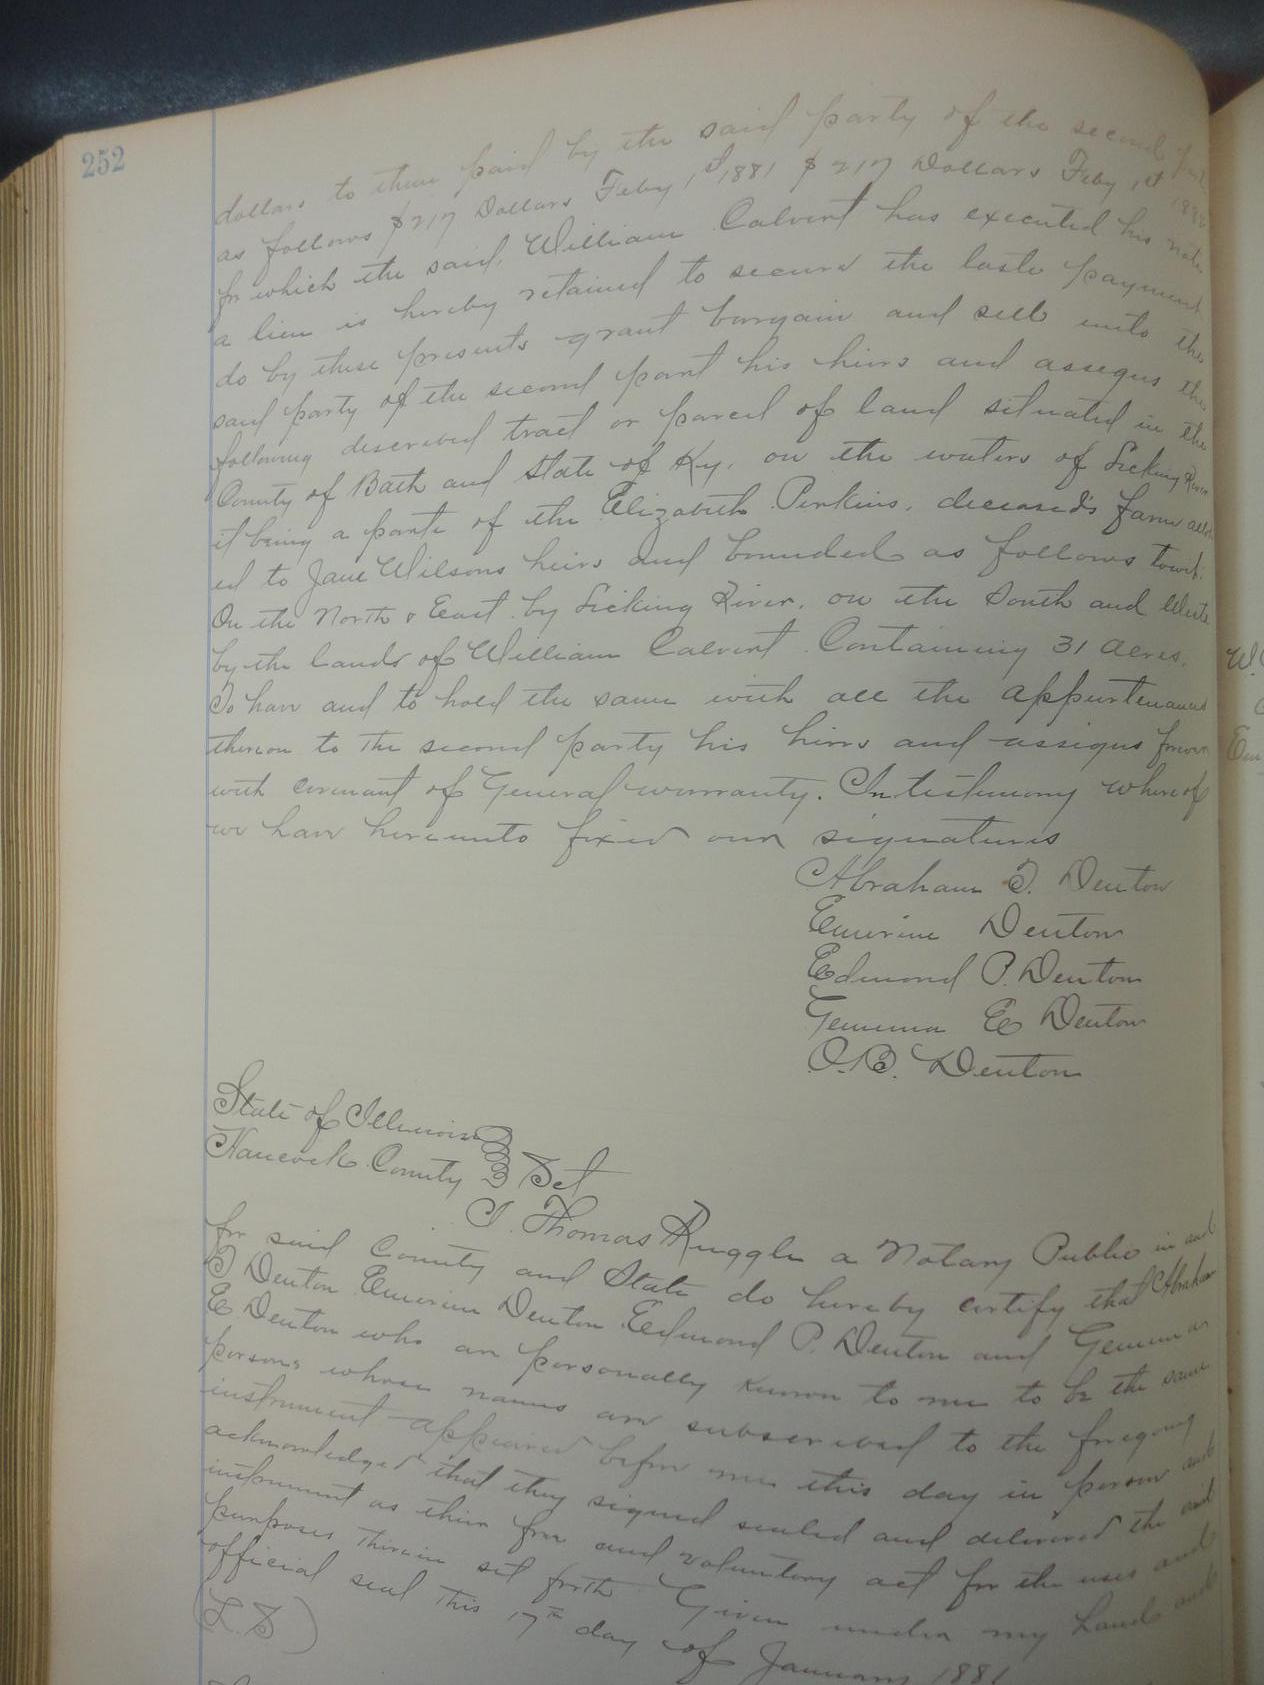 252
dollars to them paid by the said party of the second part
as follows $217 Dollars Feby 1st 1881 $217 Dollars Feby 1st 1882
for which the said, William Calvert has executed his note
a lien is hereby retained to secure the laste payment
do by these presents grant bargain and sell unto the
said party of the second part his heirs and assigns the
following described tract or parcel of land situated in the
County of Bath and State of Ky. on the waters of Licking River
it being a parte of the Elizabeth Perkins, deceased's farm allott
ed to Jane Wilsons heirs and bounded as follows towit:
On the North & East by Licking River, on the South and Weste
by the lands of William Calvert. Containing 31 acres.
To have and to hold the same with all the appurtenances
thereon to the second party his heirs and assigns forever
with covenant of General warranty. In testimony whereof
we have hereunto fixed our signatures
Abraham T. Denton
Emerine Denton
Edmond P. Denton
Gemima E Denton
O. B. Denton
State of Illinois
Hancock County } Sct
I. Thomas Ruggles a Notary Public in and
for said County and State do hereby certify that Abraham
T Denton Emerine Denton Edmond P. Denton and Gemima
E Denton who are personally known to me to be the same
persons whose names are subscribed to the foregoing
instrument appeared before me this day in person and
acknowledged that they signed sealed and delivered the said
instrument as their free and voluntary act for the uses and
purposes therein set forth Given under my hand and
official seal this 17th day of January 1881
(L.S)